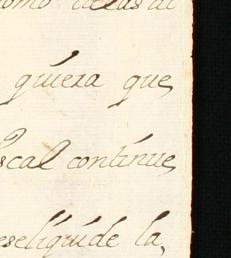 como
quiera que
scal continue
eseliquide la,